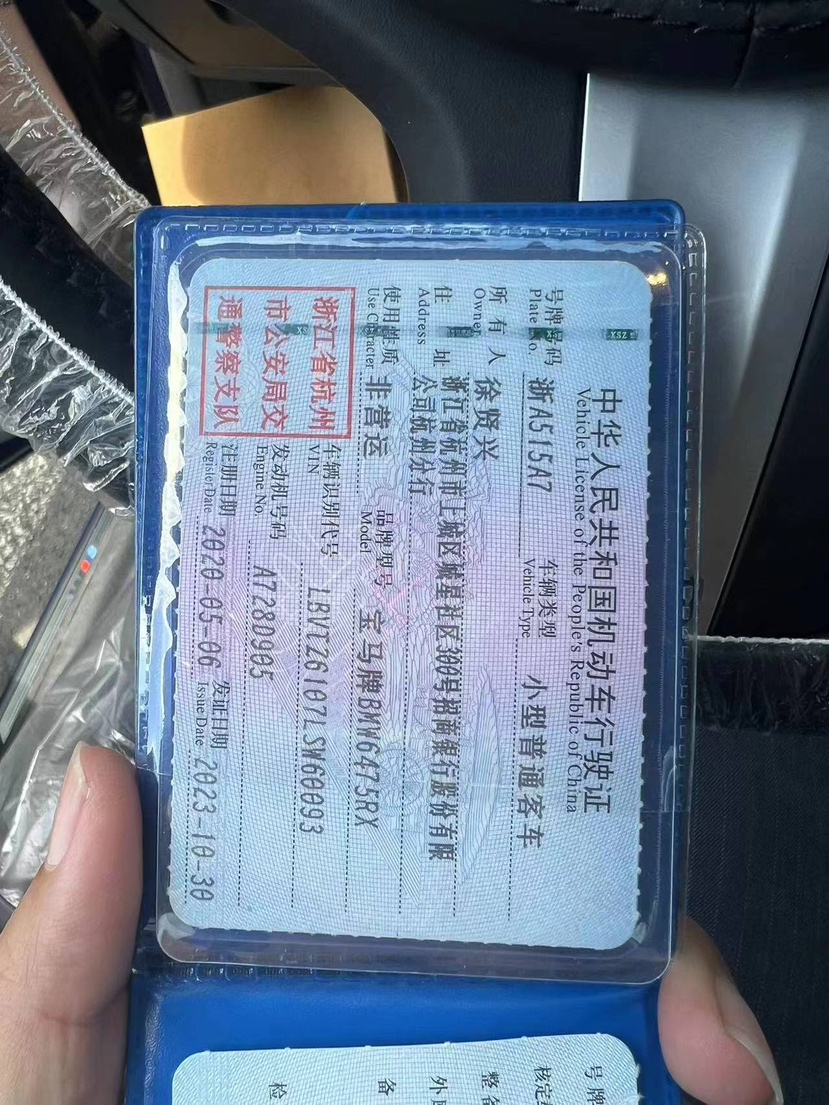 中华人民共和国机动车行驶证
Vehicle License of the People's Republic of China
号牌号码 浙A515A7 车辆类型 小型普通客车
Plate No. Vehicle Type
所有人 徐贤兴
Owner
住址 浙江省杭州市上城区城星社区300号招商银行股份有限
Address 公司杭州分行
使用性质 非营运 品牌型号 宝马牌BMW6475RX
Use Character Model
浙江省杭州
市公安局交
通警察支队
车辆识别代号 LBVTZ6107LSW60093
VIN
发动机号码 A7280905
Engine No.
注册日期 2020-05-06 发证日期 2023-10-30
Register Date Issue Date
号牌
核定
整备
外
备
检